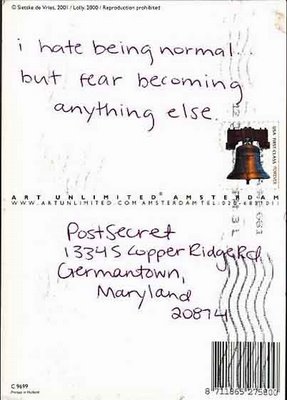 © Sietske de Vries, 2001 / Lolly, 2000 / Reproduction prohibited
i hate being normal...
but fear becoming
anything else
USA FIRST-CLASS FOREVER
ART UNLIMITED® AMSTERDAM
WWW.ARTUNLIMITED.COM AMSTERDAM TEL.
PostSecret
13345 Copper Ridge Rd
Germantown,
Maryland
20874
C 9699
Printed in Holland
8 711865 275800